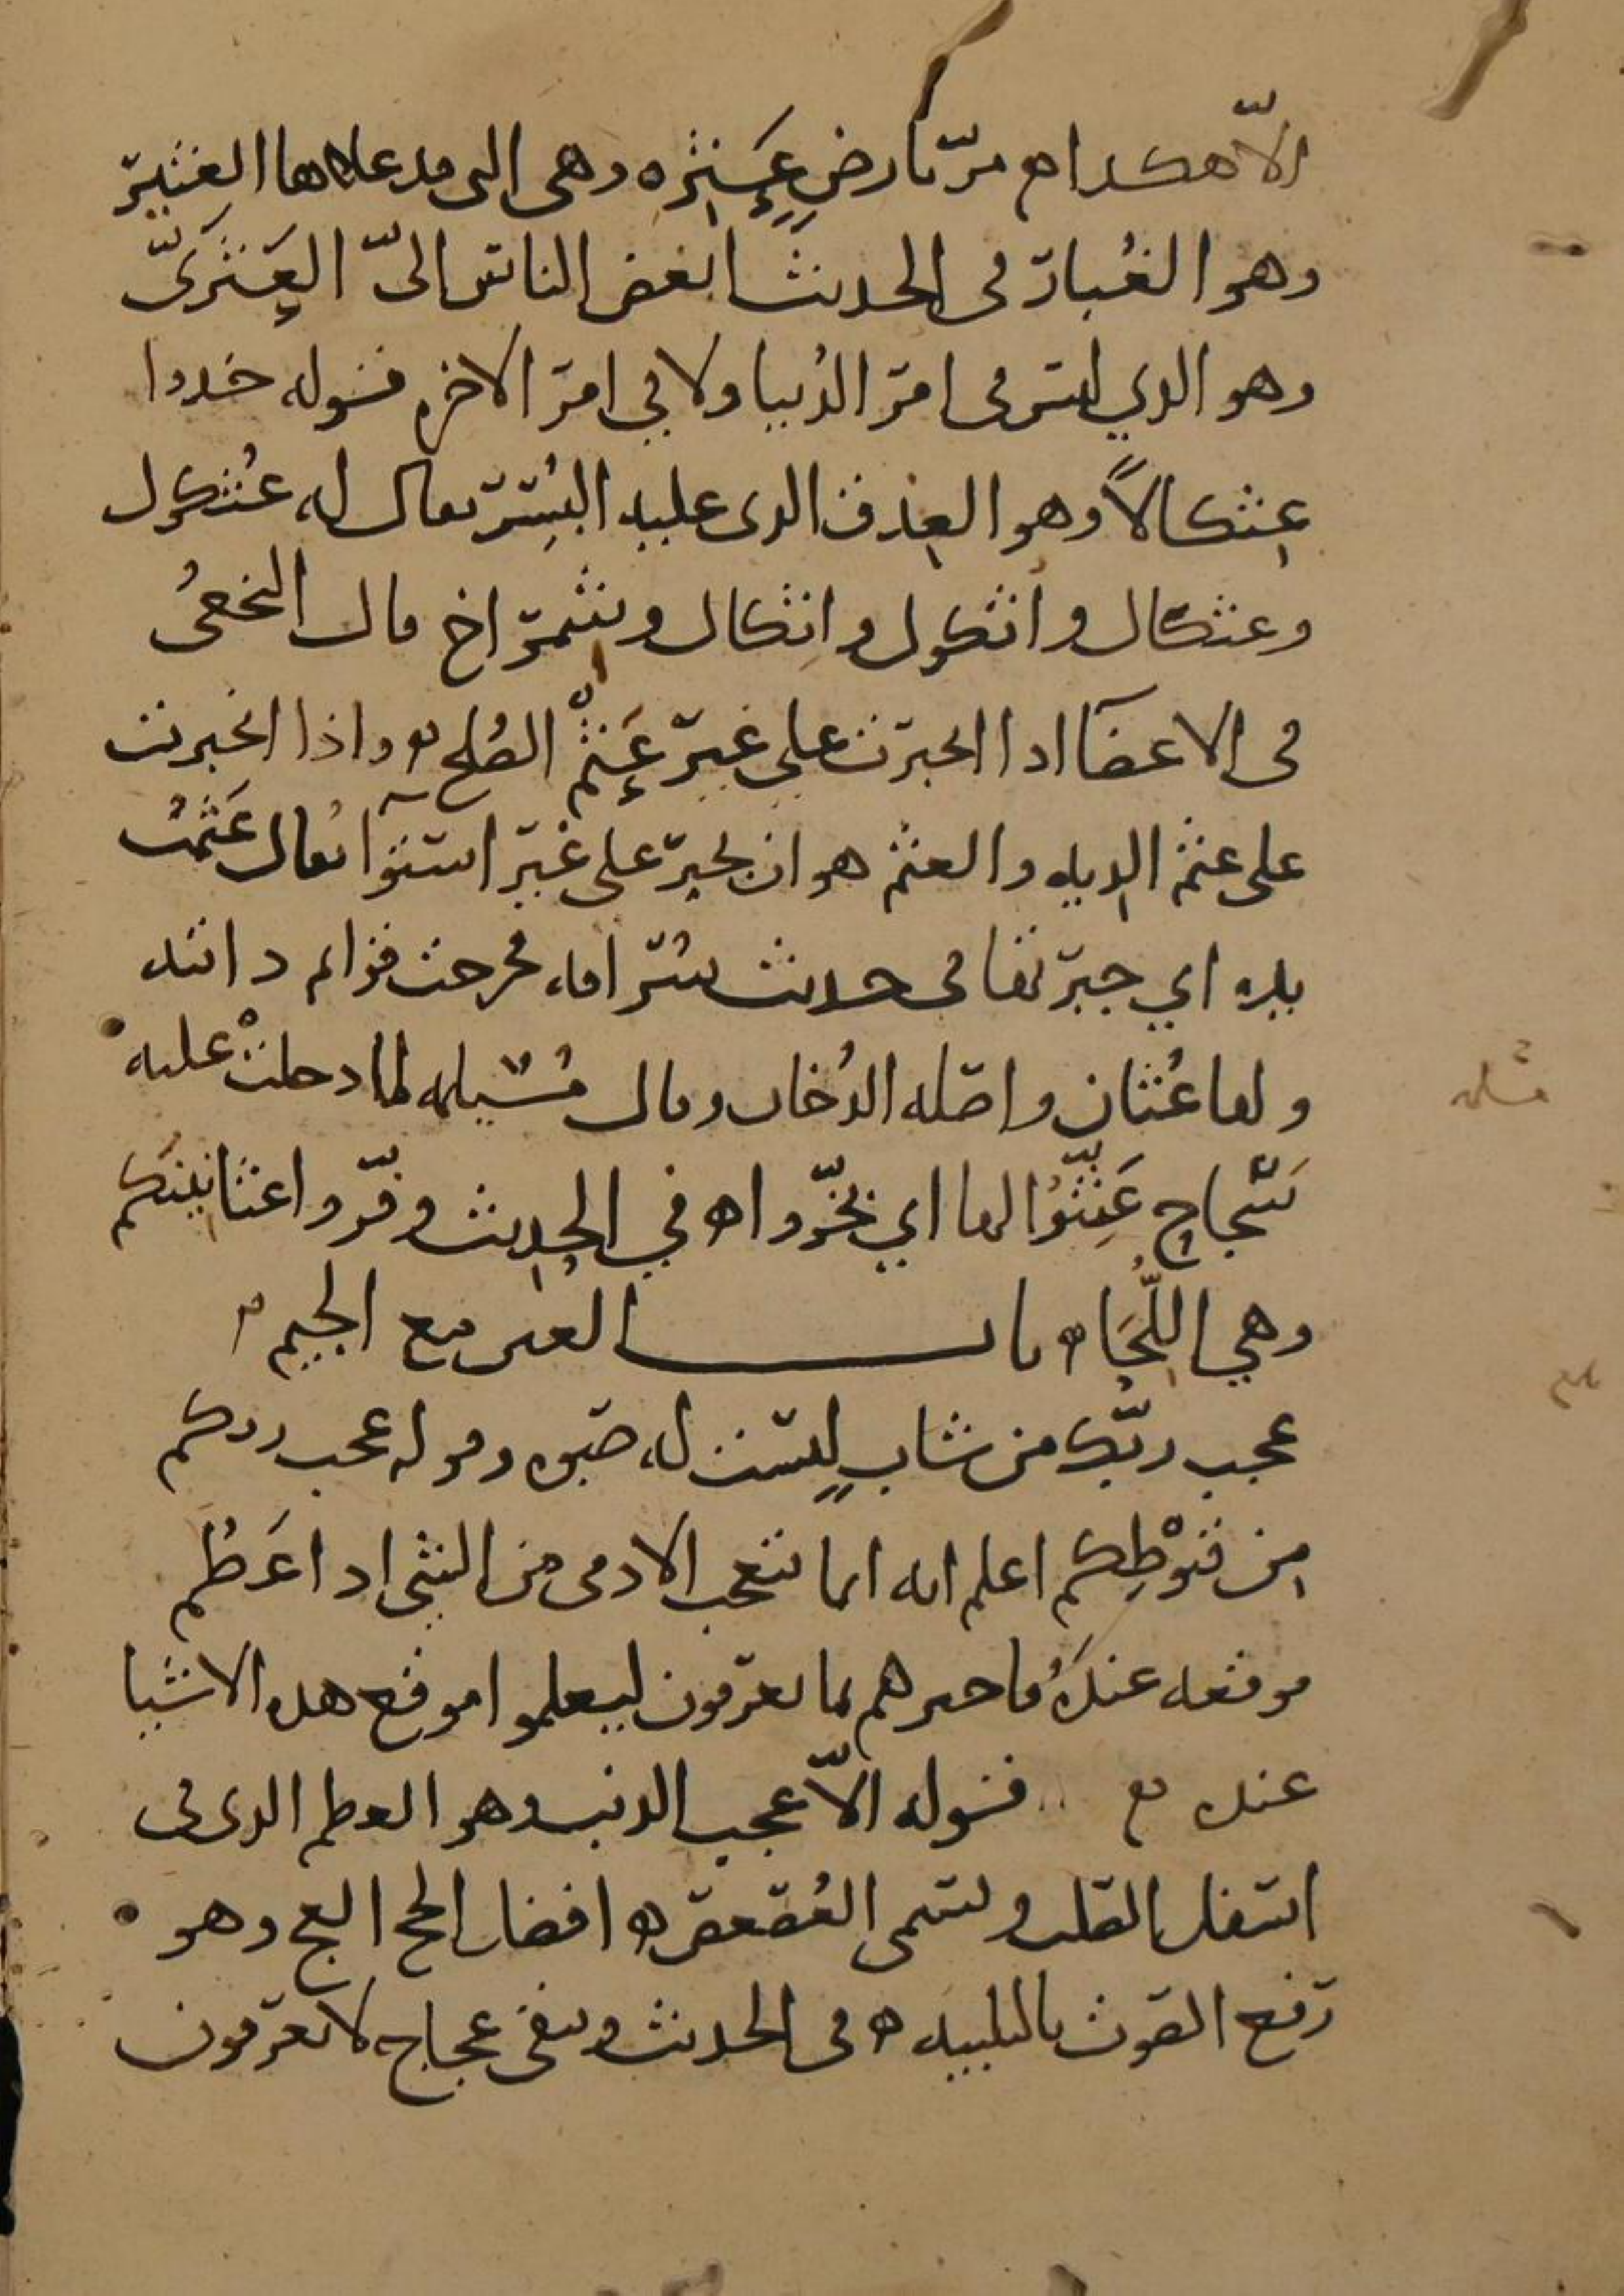 الاّ هكذا ۞ مرّ بارضٍ عَثِيَره وهى التى قد علاها العِثْيَر
وهو الغُبار فى الحديث ابغض الناس الىّ العَثَرىّ
وهو الذي ليس فى امر الدُنيا ولا في امر الاخره قوله خذوا
عِثكالاً وهو العِذق الذى عليه البُسْر يقال له عُثكول
وعثكال واُثكول واِثكال وشِمراخ قال النخعىُ
فى الاعضآ اذا انجبرت على غير عَثْمٍ الصُلح ۞ واذا انجبرت
على عثم الديه والعثم هو ان يجبر على غير استوآ يقال عَثَمْتُ
يده اي جبرتها فى حديث سُراقه خرجت قوايم دابته
ولها عُثان واصله الدُخان وقال مُسَيلمه لما دخلتْ عليه
سَجاح عَثِّنُوا لها اي بخّروا ۞ في الحديث وفّروا عثانينكم
وهي اللِّحَا ۞ باب العين مع الجيم ۞
عجب ربّك من شابٍ ليست له صبوه وقوله عجب ربكم
من قنوْطِكم اعلم انه انما يتعجب الادمى من الشى اذا عَظُم
موقعه عندهُ فاخبرهم بما يعرفون ليعلموا موقع هذه الاشيا
عنده ۞ قوله الاّ عجب الذنب وهو العظم الذى فى
اسفل الصلب ويسمى العُصعص ۞ افضل الحج العج وهو
رفع الصوت بالتلبيه ۞ فى الحديث ويبقى عجاج لا يعرفون